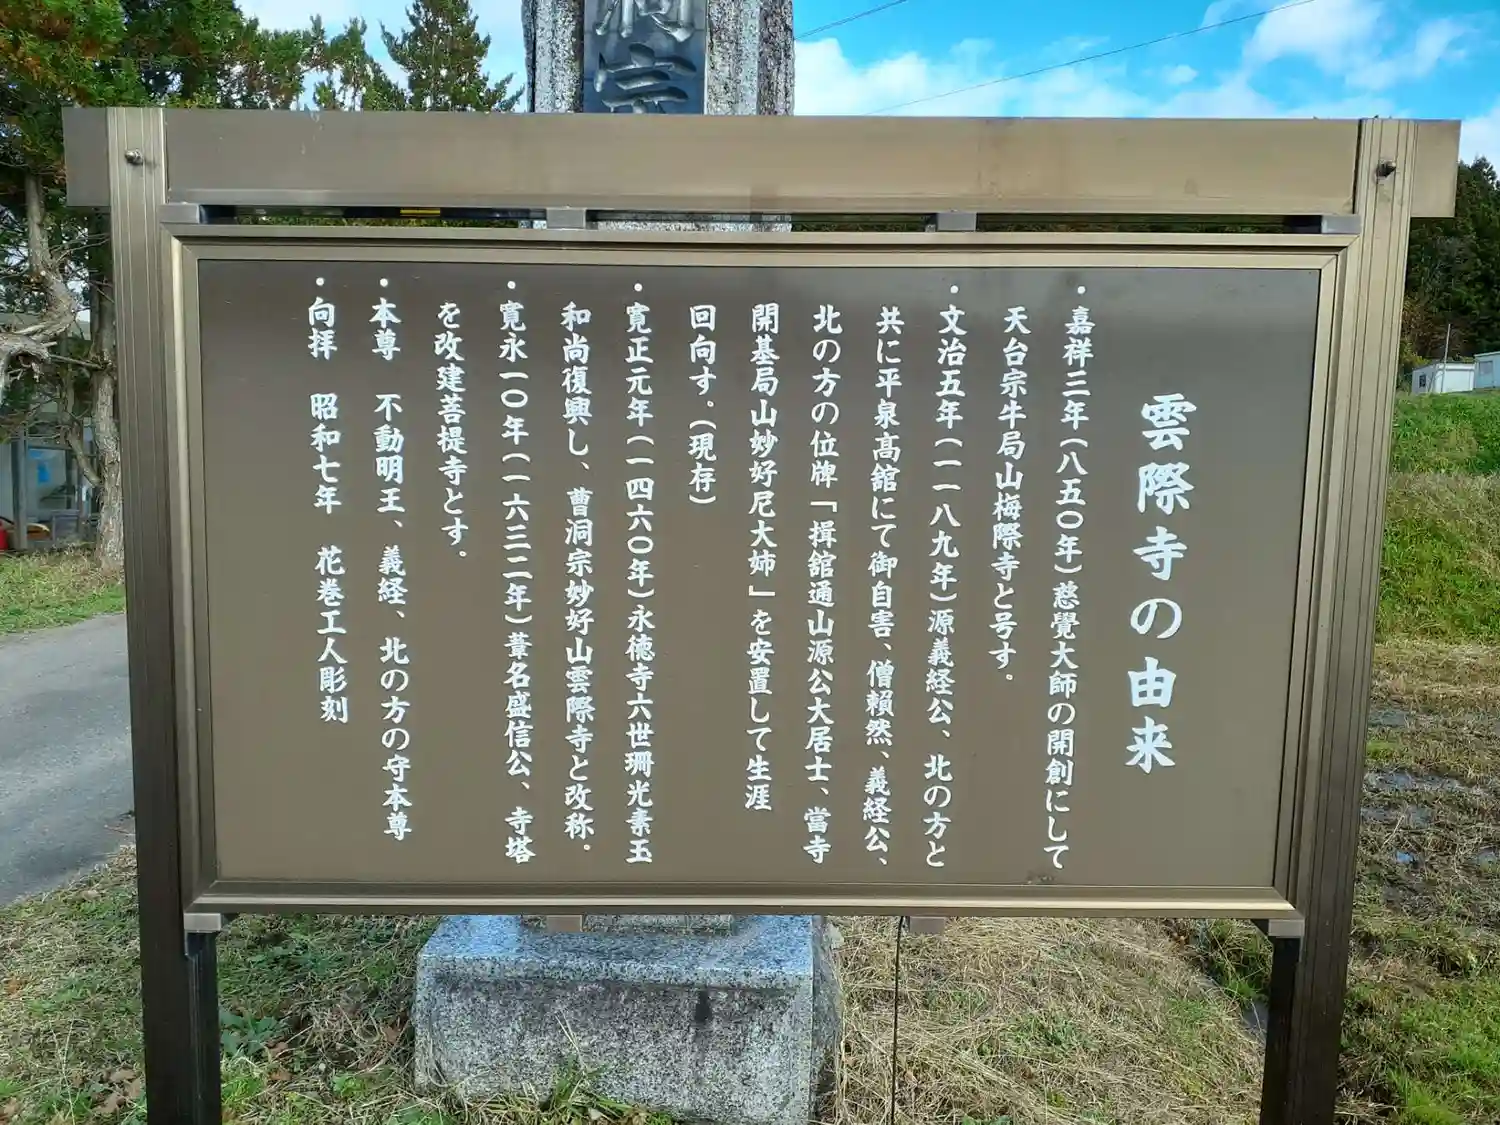 雲際寺の由来
・嘉祥三年(八五〇年)慈覺大師の開創にして
天台宗牛局山梅際寺と号す.
・文治五年(一一八九年)源義経公、北の方と
共に平泉髙舘にて御自害、僧頼然、義経公、
北の方の位牌「損舘通山源公大居士、當寺
開基局山妙好尼大姉」を安置して生涯
回向す.(現存)
・寛正元年(一四六〇年)永徳寺六世珊光素玉
和尚復興し、曹洞宗妙好山雲際寺と改称.
・寛永一〇年(一六三二年)葦名盛信公、寺塔
を改建菩提寺とす.
・本尊 不動明王、義経、北の方の守本尊
・向拝 昭和七年 花巻工人彫刻
宗